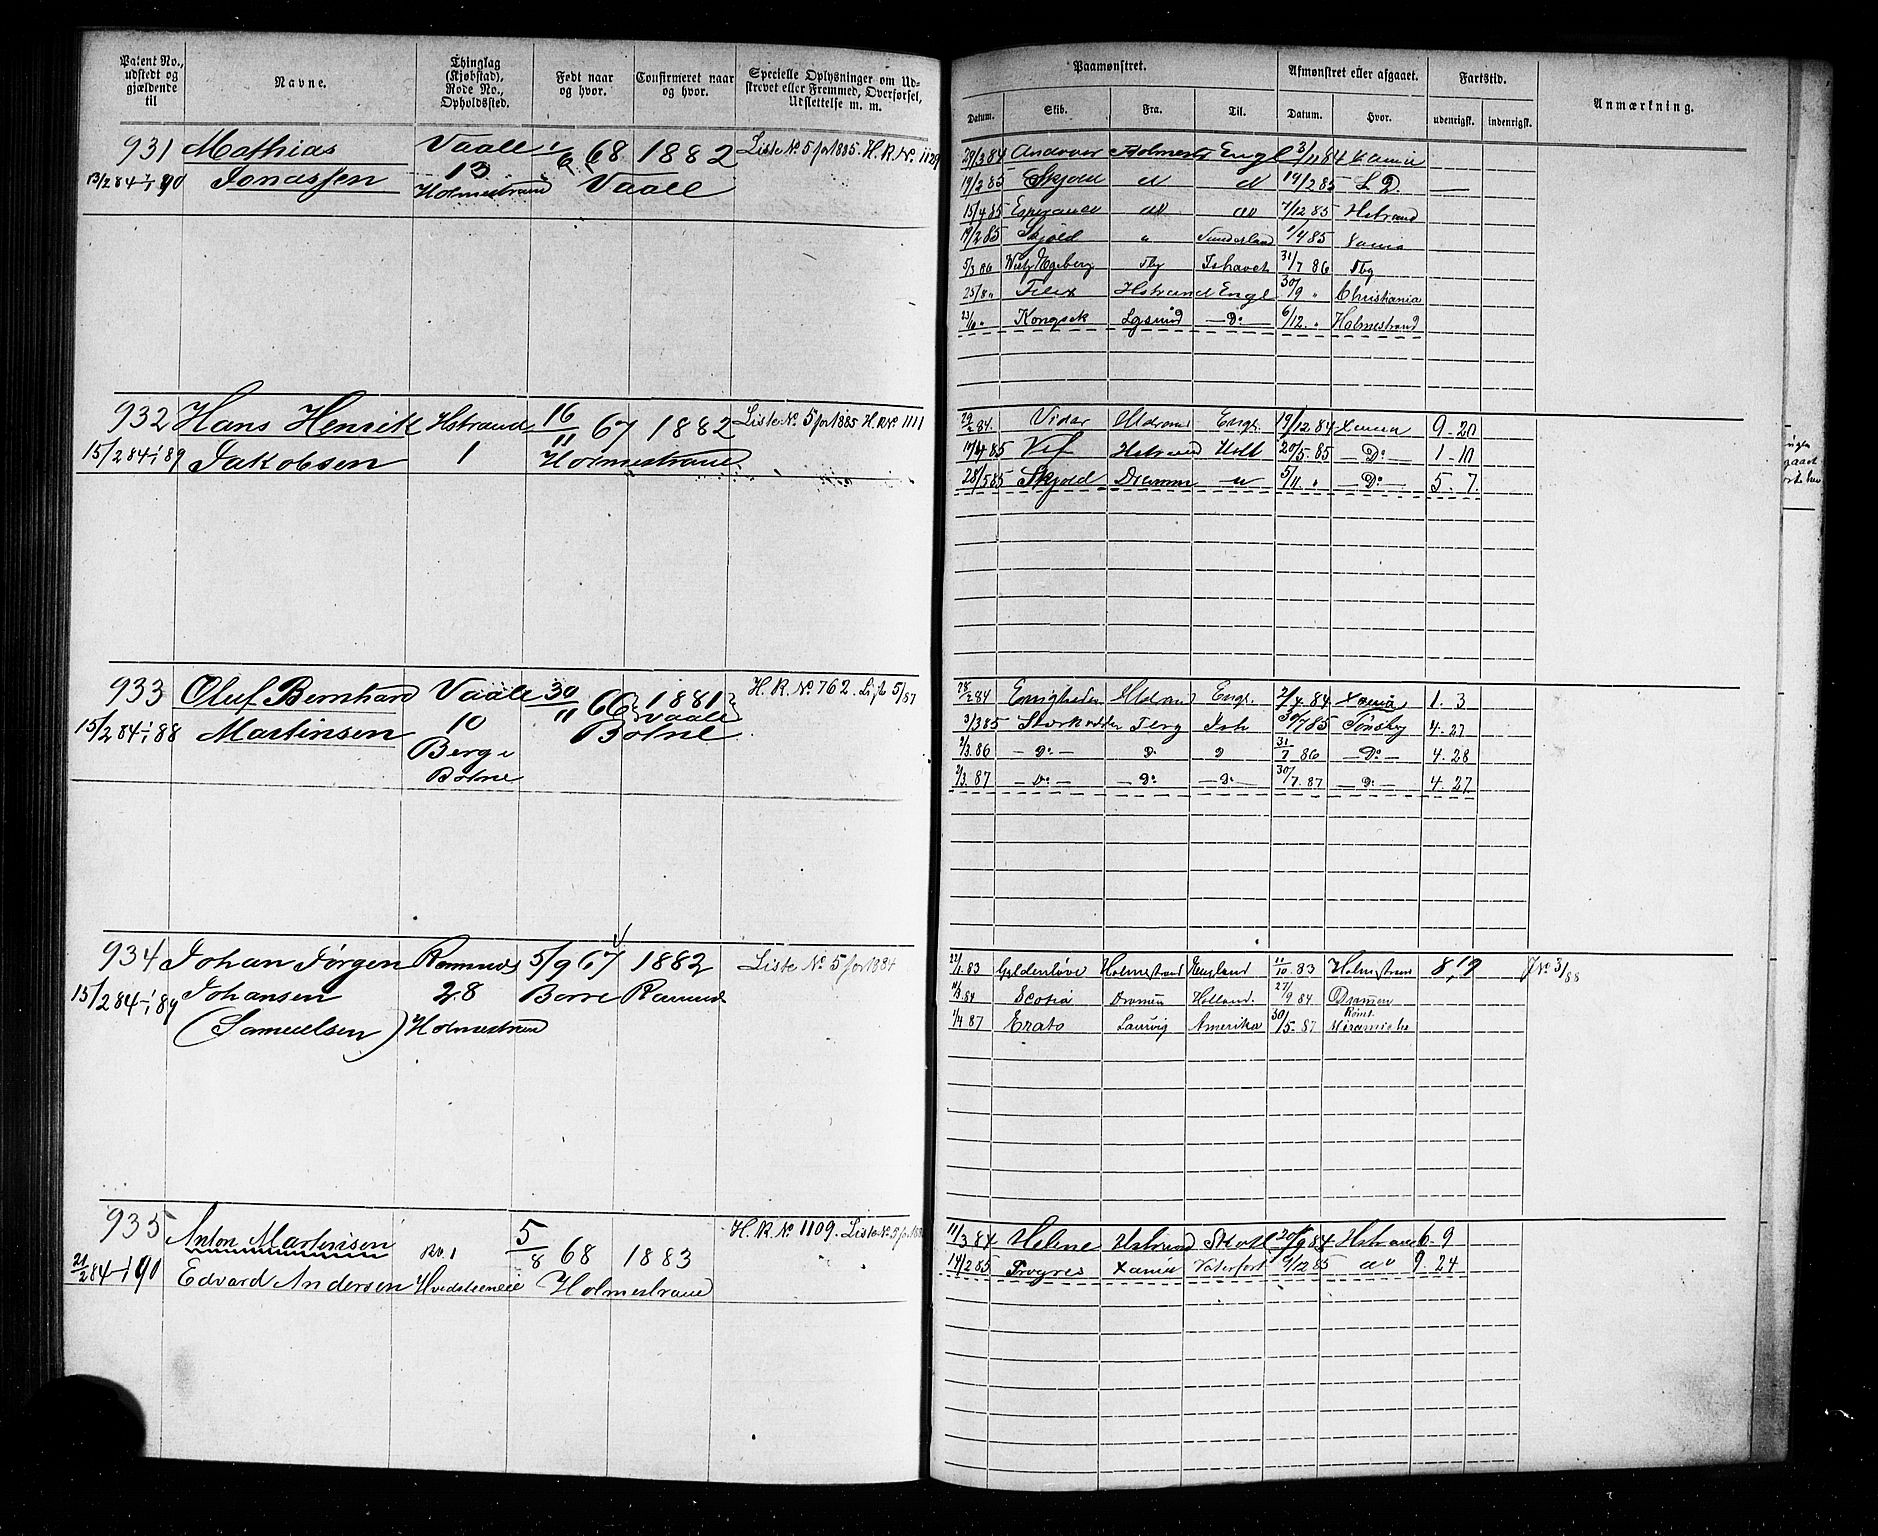 Patent No., udstedt og gjældende til
Navne.
Thinglag (Kjøbstad), Rode No., Opholdssted.
Født naar og hvor.
Confirmeret naar og hvor.
Specielle Oplysninger om Udskrevet eller Fremmed, Overførsel, Udslettelse m. m.
Paamønstret.
Afmønstret eller afgaaet.
Fartstid.
Anmærkning.
Datum.
Skib.
Fra.
Til.
Datum.
Hvor.
udenrigsk.
indenrigsk.
931 Mathias Vaale 1/6 68 1882 Liste No. 5 for 1885. H. R. No.
13/2 84 - 1/1 90 Jonassen 13 Vaale
Holmestrand
29/3 84 Andover Holmestr Engl 3/11 84 Xania
19/2 85 Skjold do do 14/2 85
15/4 85 Esperance do do 7/12 85 Hstrand
19/2 85 Skjold " Sunderland 1/4 85 Xania
5/3 86 Tbg Ishavet 31/7 86 Tbg
25/8 " Felix Hstrand Engl 30/9 " Christiania
Kongsek Lgsund - Do - 6/12 " Holmestrand
932 Hans Henrik Hstrand 16/11 67 1882 Liste No. 5 for 1885 H. R. No. 1111
15/2 84 - 1/1 89 Jakobsen 1 Holmestrand
29/2 84 Vidar Engl. 19/12 84 Xania 9 - 20
17/4 85 Vif Hstrand Holl 20/5 85 - Do - 1 - 10
28/5 85 Skjold Dramm " 5/11 " - Do - 5. 7.
933 Oluf Bernhard Vaale 30/11 66 1881 H. R. No. 762. Liste 5/87
15/2 84 - 1/1 88 Martinsen 10 Vaale
Berge Botne
Botne
28/2 84 Enigheden Engl. 2/4 84 Xania 1. 3
3/3 85 Storkodder Tbrg Ish 30/7 85 Tønsbg 4. 27
2/3. 86 - Do - Do Do 31/7 86 - Do - 4. 28
2/3. 87 - Do - - Do - - Do - 30/7. 87 - Do - 4. 27
934 Johan Jørgen Ramnæs 5/9 67 1882 Liste No. 5 for 1884
15/2 84 - 1/1 89 Johansen 28 Borre Ramnæs
(Samuelsen) Holmestrand
22/1. 83 Gyldenløve Holmestrand England 11/10 83 Holmestrand 8, 19 J No 3/88
Scotia Drammen Holland. 27/9 84 Dramen
1/4 87 Erato Laurvig Amerika 30/5. 87 Rømt
Miramichi
935 Anton Martinsen 5/8 68 1883 H. R. No 1109. Liste No. 5 for
21/2 84 - 1/1 90 Edvard Andersen No. 1 Holmestrand
Hvidsteneie
11/3 84 Helene Hstrand Skotl 20/9 84 Hstrand 6. 9
14/2 85 Progres Xania Vaterfort 9/12 85 do 9. 24